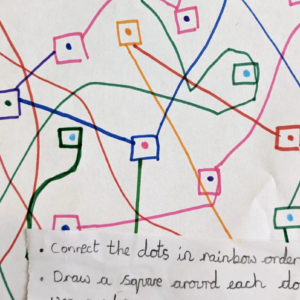 • Connect the dots in rainbow order
• Draw a square around each do